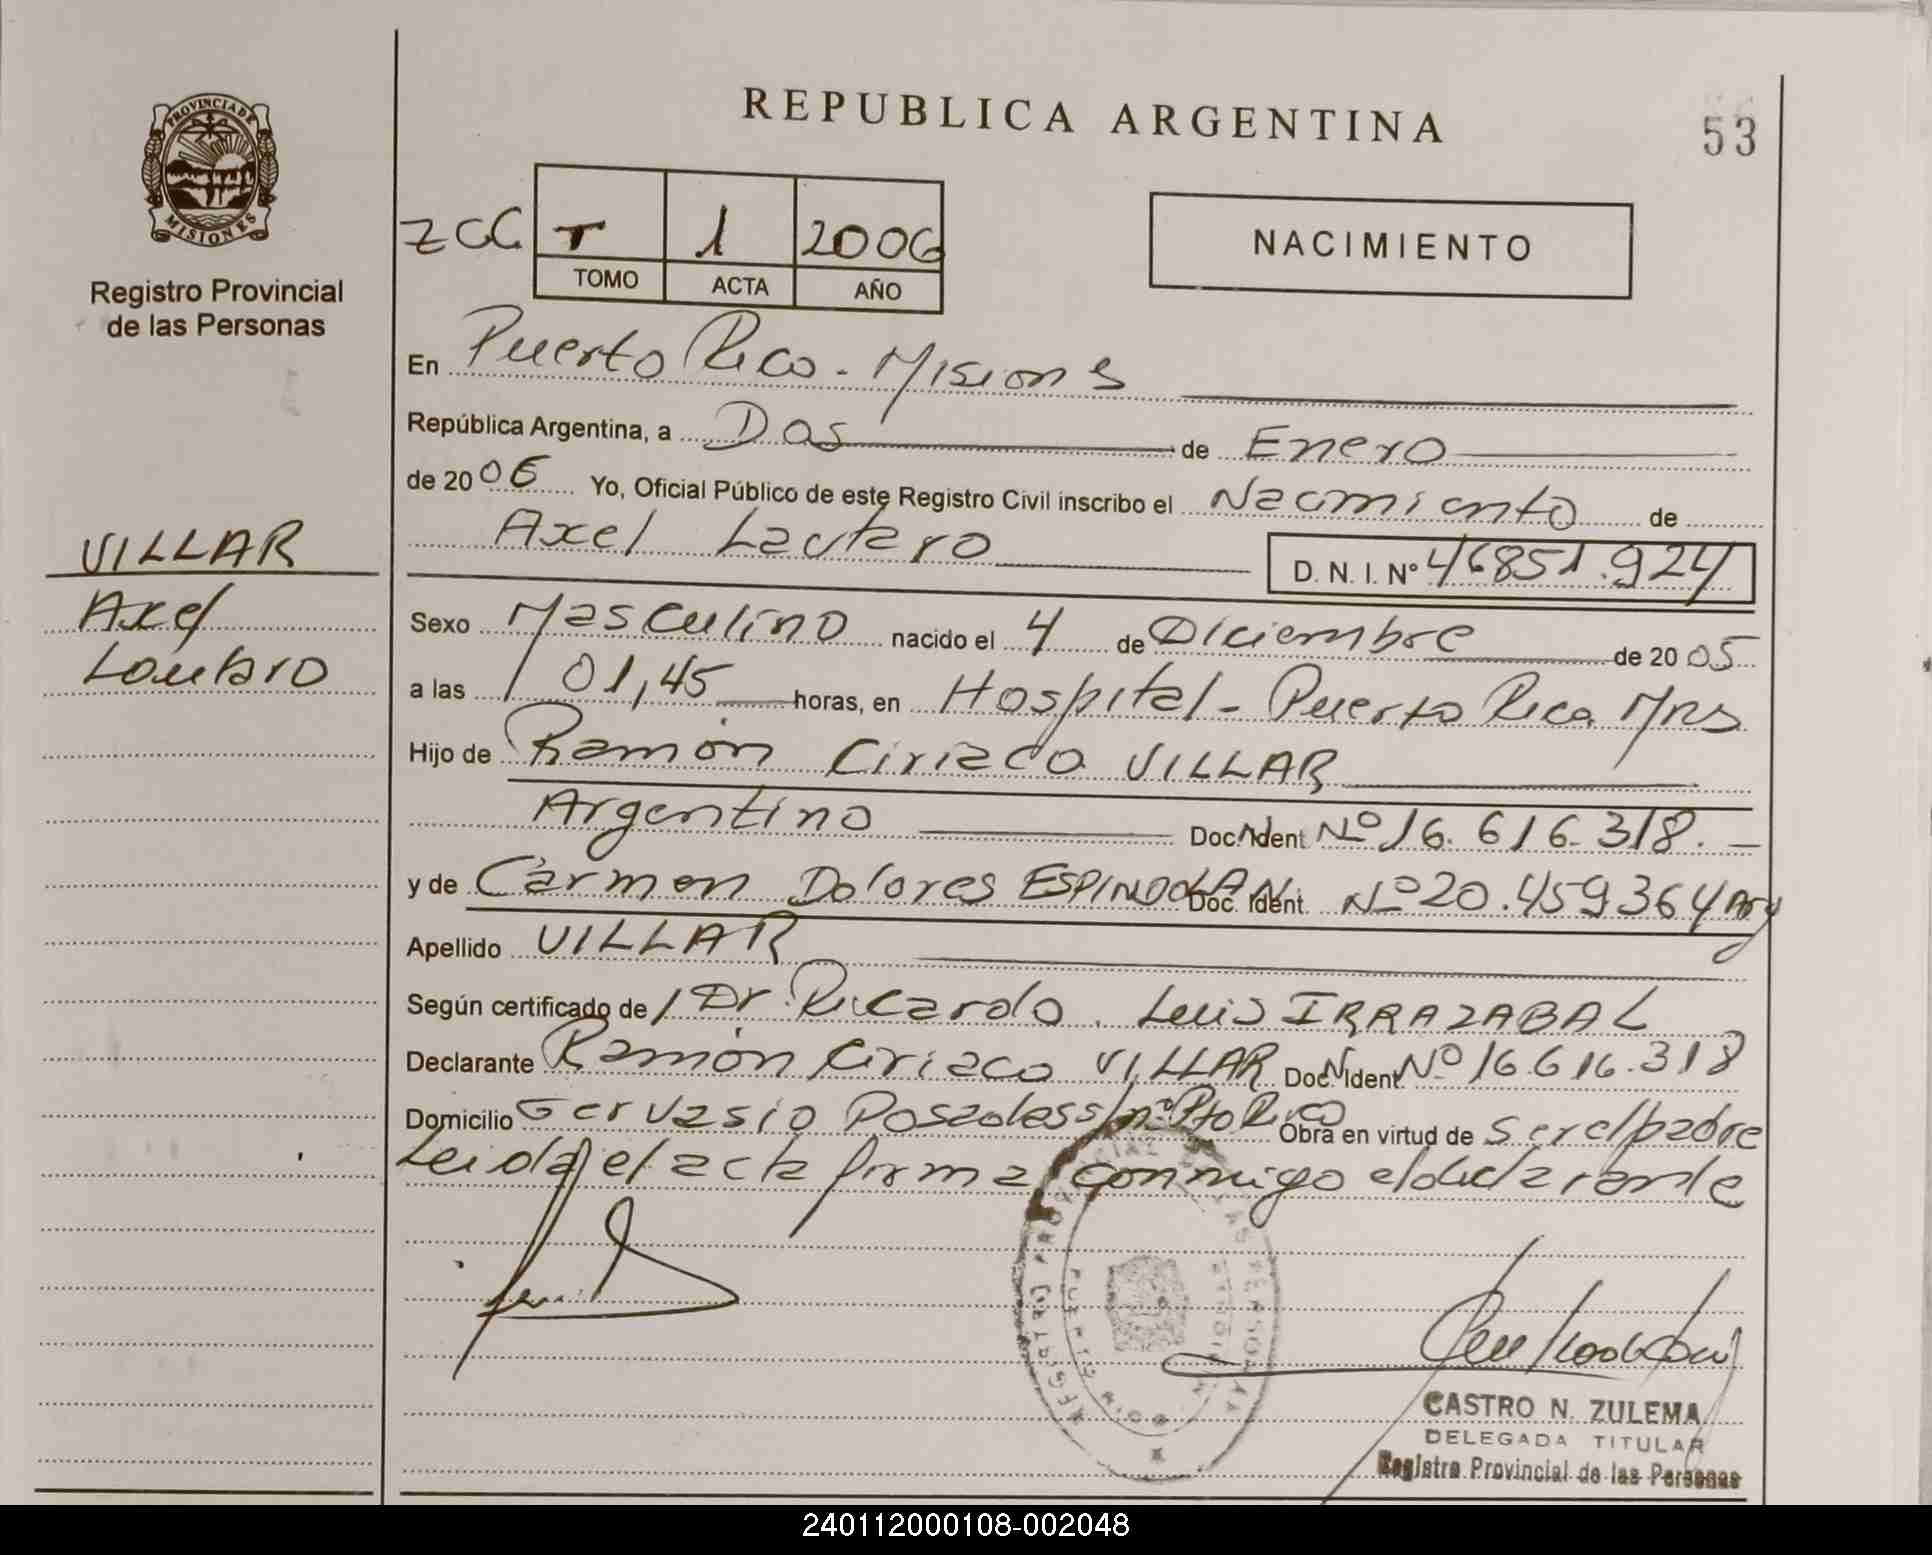 REPUBLICA ARGENTINA
53
PROVINCIA DE MISIONES
Registro Provincial
de las Personas
ZCC T 1 2006
TOMO ACTA AÑO
NACIMIENTO
En Puerto Rico - Misiones
República Argentina, a Dos de Enero
de 2006 Yo, Oficial Público de este Registro Civil inscribo el Nacimiento de
Axel Lautaro D. N. I. Nº 46851.924
VILLAR
Axel
Lautaro
Sexo Masculino nacido el 4 de Diciembre de 2005
a las 01,45 horas, en Hospital - Puerto Rico Mns
Hijo de Ramón Ciriaco VILLAR
Argentino Doc. Ident Nº 16.616.318. -
y de Carmen Dolores ESPINDOLA Doc. Ident. Nº 20.459364 Arg
Apellido VILLAR
Según certificado de Dr. Ricardo Luis IRRAZABAL
Declarante Ramón Ciriaco VILLAR Doc. Ident. Nº 16.616.318
Domicilio Gervasio Posadas s/nº Pto Rico Obra en virtud de ser el padre
Leida el acta firma conmigo el declarante
REGISTRO PROVINCIAL DE LAS PERSONAS
PUERTO RICO MISIONES
CASTRO N. ZULEMA
DELEGADA TITULAR
Registro Provincial de las Personas
240112000108-002048